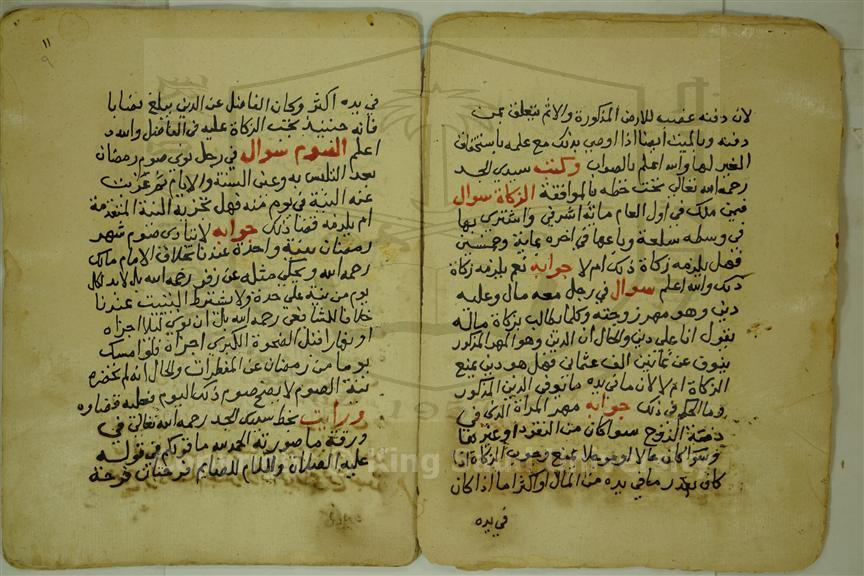 لان دفنه غصب للارض المذكورة والاثم يتعلق بمن
دفنه وبالميت ايضا اذا اوصى بذلك مع علمه باستحقاق
الغير لها والله اعلم بالصواب وكتب سيدي الجد
رحمه الله تعالى تحت خطه بالموافقة الزكاة سوال
فيمن ملك في اول العام مائة اشرفي واشترى بها
في وسطه سلعة وباعها في اخره بماية وخمسين
فهل يلزمه زكاة ذلك ام لا جوابه نعم يلزمه زكاة
ذلك والله اعلم سوال في رجل معه مال وعليه
دين وهو مهر زوجته وكلما يطالب بزكاة ماله
يقول انا علي دين والحال ان الدين وهو المهر المذكور
ينوف عن ثمانين الف عثماني فهل هو دين يمنع
الزكاة ام لا لان ما في يده ما يوفي الدين المذكور
وما الحكم في ذلك جوابه مهر المراة الذي في
ذمة الزوج سوا كان من النقد او غير هذا
وسوا كان حالا او موجلا يمنع وجوب الزكاة اذا
كان بقدر ما في يده من المال او اكثر اما اذا كان
في يده
١١
٩
في يده اكثر وكان الفاضل عن الدين يبلغ نصابا
فانه حينيذ تجب الزكاة عليه في الفاضل والله
اعلم الصوم سوال في رجل نوى صوم رمضان
بعد التلبس به وعين السنة والايام ثم عزبت
عنه النية في يوم منه فهل تجزيه النية المتقدمة
ام يلزمه قضا ذلك جوابه لا يتادى صوم شهر
رمضان بنية واحدة عندنا خلافا للامام مالك
رحمه الله ويحكى مثله عن زفر رحمه الله بل لا بد لكل
يوم من نية على حدة ولا يشترط التبييت عندنا
خلافا للشافعي رحمه الله بل ان نوى ليلا اجزاه
او نهارا قبل الضحوة الكبرى اجزاه فلو امسك
يوما من رمضان عن المفطرات والحال انه لم تحضره
نية الصوم لا يصح صوم ذلك اليوم فعليه قضاوه
ورايت بخط سيدي الجد رحمه الله تعالى في
ورقة ما صورته الحمد لله ما قولكم في قوله
عليه الصلاة والسلام للصايم فرحتان فرحة